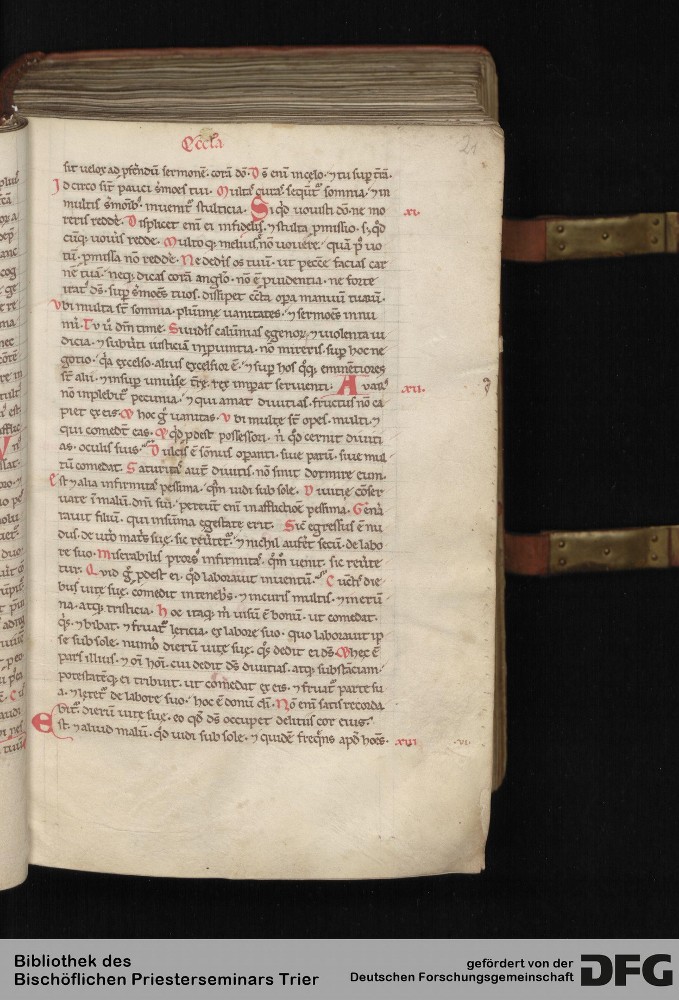 Eccła
21
sit velox ad ꝓferendū sermonē· corā dō· Dꝰ enī in celo· ⁊ tu sup trā·
Idcirco sīt pauci smōes tui· Multas curas sequīt᷑ somnia· ⁊ in
multis smōib᷒ inuenit᷑ stulticia· Siqd vouisti dō· ne mo
reris redde· Displicet enī ei infidelis· ⁊ stulta ꝓmissio· s; qd
xi.
cūq; vouis redde· Multoq; melius nō vovere· quā
ꝓmissa nō redde· Ne dedis os tuū· ut peccē facias car
nē tuā· neq; dicas corā anglo· nō ē ꝓuidentia· ne forte
irat᷒ ds· sup smōes tuos· dissipet cuncta opa manuū tuarū·
Vbi multa sīt somnia· plurime vanitates· ⁊ sermoes innu
mi· Tu ū dm time· Si uidis calūnias egenoꝝ· ⁊ violenta iu
dicia· ⁊ subuti iusticiā in ꝓuintia· nō mireris· sup hoc ne
gotio· qa excelso· altius excelsior ē· ⁊ sup hos qq; eminētiores
sīt alii· ⁊ insup uniuse tre· rex impat seruienti· Auar᷒
xii.
nō implebit᷑ pecunia· ⁊ qui amat diuitias· fructus nō ca
piet ex eis· ⁊ hoc g vanitas· Vbi multe sīt opes· multi ⁊
qui comedūt eas· Et qd ꝓdest possessori· n qd cernit diuiti
as· oculis suis· Dulcis ē somus opanti· siue parū· siue mul
tū comedat· Saturitas autē diuitis· nō sinit dormire eum·
Est ⁊ alia infirmitas pessima· quā uidi sub sole· Diuitie cōser
uate in malū dni sui· pereūt enī in afflictione pessima· Gena
rauit filiū· qui in sūma egestate erit· Sic egressus ē nu
dus· de utero matris sue· sic reutet᷑· ⁊ nichil aufert secū· de labo
re suo· Miserabilis ꝓrsus infirmitas· quō uenit· sic reute
tur· Quid g ꝓdest ei· qd laborauit in uentū· Cunctis die
bus uite sue· comedit in tenebs· ⁊ in curis multis· ⁊ in erū
na· atq; tristicia· Hoc itaq; m uisū ē bonū· ut comedat
qs· ⁊ bibat· ⁊ fruat᷑ leticia· ex labore suo· quo laborauit ip
se sub sole· numo dierū uite sue· qs dedit ei ds· ⁊ hec ē
pars illius· ⁊ oi hōi· cui dedit ds diuitias· atq; substāciam·
potestatēq; ei tribuit· ut comedat ex eis· ⁊ fruat᷑ parte su
a· ⁊ letet᷑ de labore suo· hoc ē donū di· Nō enī satis recorda
bit᷑ dierū uite sue· eo qd ds occupet deliciis cor eius·
Est ⁊ aliud malū· qd uidi sub sole· ⁊ quidē freqns apd hoes·
xiii.
vi.
Bibliothek des
Bischöflichen Priesterseminars Trier
gefördert von der
Deutschen Forschungsgemeinschaft
DFG